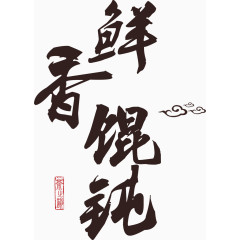 鲜
香
馄
饨